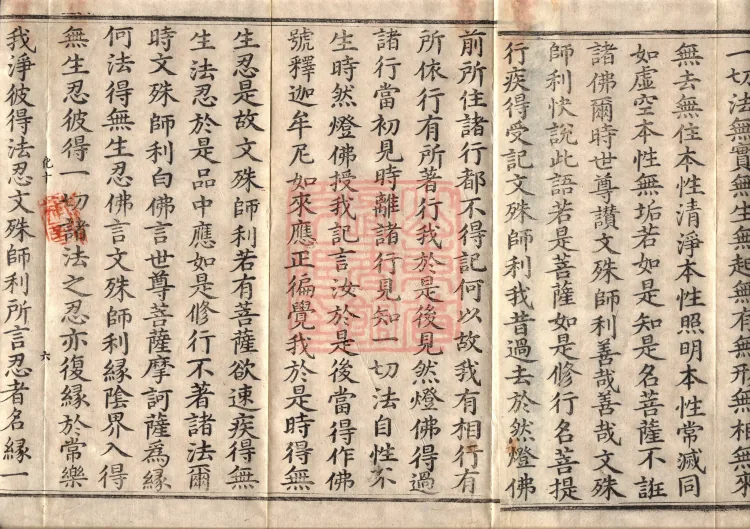 一切法無實無生無起無有無形無相無來
無去無住本性清淨本性照明本性常滅同
如虛空本性無垢若如是知是名菩薩不誑
諸佛爾時世尊讚文殊師利善哉善哉文殊
師利快說此語若是菩薩如是修行名菩提
行疾得受記文殊師利我昔過去於然燈佛
前所住諸行都不得記何以故我有相行有
所依行有所著行我於是後見然燈佛得過
諸行當初見時離諸行見知一切法自性不
生時然燈佛授我記言汝於是後當得作佛
號釋迦牟尼如來應正徧覺我於是時得無
生忍是故文殊師利若有菩薩欲速疾得無
生法忍於是品中應如是修行不著諸法爾
時文殊師利白佛言世尊菩薩摩訶薩爲緣
何法得無生忍佛言文殊師利緣陰界入得
無生忍彼得一切諸法之忍亦復緣於常樂
十 六
我淨彼得法忍文殊師利所言忍者名緣一